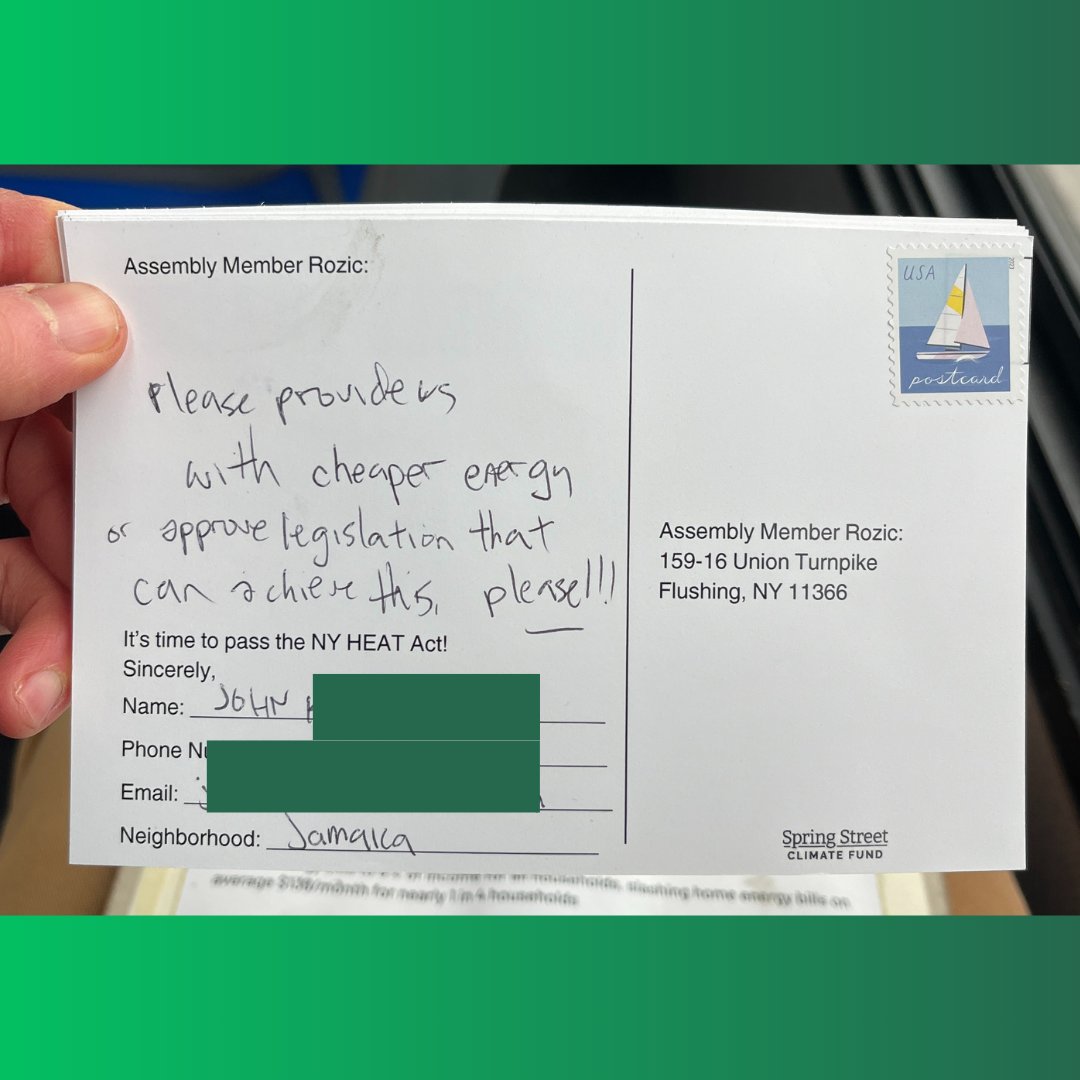 Assembly Member Rozic:
Please provide us
with cheaper energy
or approve legislation that
can achieve this, please!!!
It's time to pass the NY HEAT Act!
Sincerely,
Name: JOHN
Phone Nu
Email:
Neighborhood: Jamaica
USA
postcard
Assembly Member Rozic:
159-16 Union Turnpike
Flushing, NY 11366
Spring Street
CLIMATE FUND
households, slashing home energy bills on
average $136/month for nearly 1 in 4 households